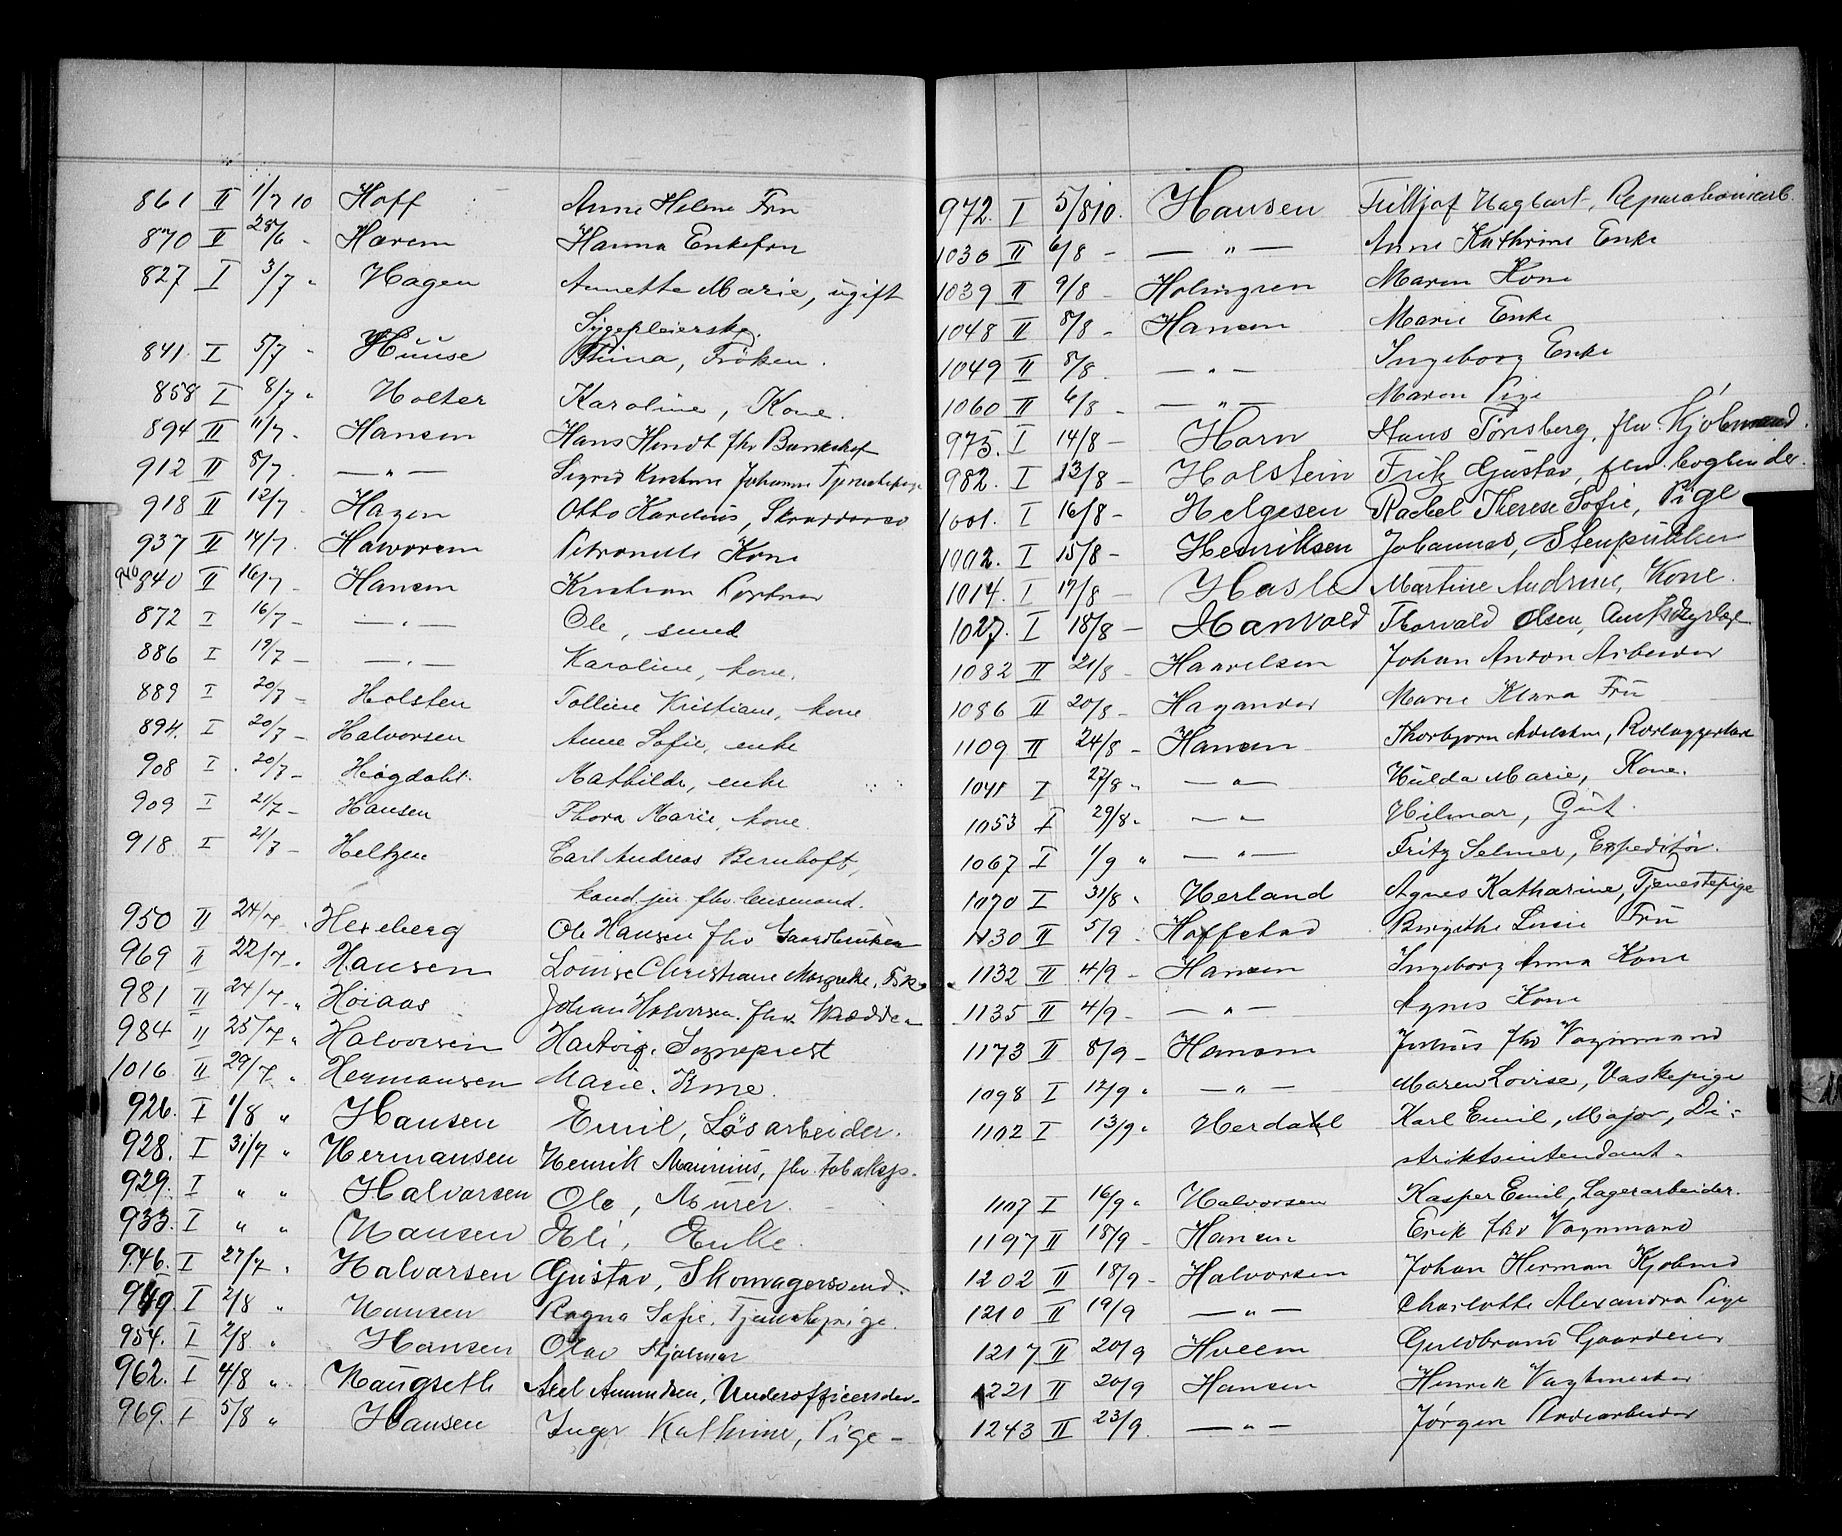 861 II 1/7 10 Hoff Anne Helene Fru
870 II 28/6 - Harem Hanna Enkefru
827 I 3/7 " Hagen Annette Marie, ugift
Sygepleierske.
841. I 5/7 " Huuse Stina, Frøken.
858 I 8/7 " Holter Karoline, Kone.
894 II 11/7 - Hansen Hans Hindt fhv Bankchef
912 II 8/7 - — " — Sigrid Kristine Johanne Tjenestepige
918 II 12/7 Hagen Otto Kornelius, Skræddersv
937 II 14/7 - Halvorsen Petronelle Kone
940 840 II 16/7 - Hansen Kristian Portner
872 I 16/7 - — " — Ole, smed
886 I 19/7 - — " — Karoline, kone.
889 I 20/7 - Holsten Tolline Kristiane, kone
894. I 20/7 - Halvorsen Anne Sofie, enke
908 I. 20/7 - Høgdahl Mathilde, enke
909 I 21/7 - Hansen Thora Marie, kone.
918 I 21/7 - Heltzen Carl Andreas Bernhoft,
kand. jur fhv. lensmand.
950 II 24/7 - Hexeberg Ole Hansen fhv Gaardbruker
969 II 22/7 " Hansen Louise Christiane Margrethe,
981 II 24/7 " Høiaas Johan Halvorsen. fhv. Skrædder
984 II 25/7 " Halvorsen Hartvig. Sogneprest
1016 II 29/7 " Hermansen Marie. Kone.
926. I 1/8 " Hansen Emil, Løsarbeider.
928. I 31/7 " Hermansen Henrik Maurinius, fhv. Tobaksp.
929. I " " Halvorsen Ole, Murer.
933. I " " Hansen Eli, Enke.
946. I 27/7 " Halvorsen Gustav, Skomagersvend.
949 I 2/8 " Hansen Ragna Sofie, Tjenestepige.
954. I 2/8 " Hansen Olav Hjalmar
962. I 4/8 " Haugseth Axel Amundsen, Underofficersdev.
969. I 5/8 " Hansen Inger Kathrine, Pige -
972. I 5/8 10. Hansen Fritjof Hagbart, Reparationsarb.
1030 II 6/8 - — " — Anne Kathrine Enke
1039 II 9/8 - Holmgren Maren Kone
1048 II 8/8 - Hansen Marie Enke
1049 II 8/8 — " — Ingeborg Enke
1060 II 6/8 - — " — Maren Pige
975. I 14/8 - Horn Hans Tønsberg, fhv. Kjøbmand.
982. I 13/8 - Holstein Fritz Gustav, fhv. bogbinder.
1001. I 16/8 - Helgesen Rachel Therese Sofie, Pige
1002. I 15/8 - Henriksen Johannes, Stenpukker
1014. I 17/8 - Hasle Martine Andrine, Kone.
1027. I 18/8 - Hanvold Thorvald Olsen,
1082 II 21/8 - Haavelsen Johan Anton Arbeider
1086 II 20/8 - Hagander Marie Klara Fru
1109 II 24/8 - Hansen Thorbjørn Adelsten, Rørlæggerlære
1041 I 27/8 " — " — Hulda Marie, Kone.
1053 I 29/8 " — " — Hilmar, Gut.
1067 I 1/9 " — " — Fritz Selmer, Expeditør.
1070 I 31/8 " Herland Agnes Katharine, Tjenestepige
1130 II 5/9 - Hoffstad Birgithe Lucie Fru
1132 II 4/9 - Hansen Ingeborg Anna Kone
1135 II 4/9 - — " — Agnes Kone
1173 II 8/9 - Hansen Julius fhv Vognmand
1098 I 12/9 " — " — Maren Lovise, Vaskepige
1102 I 13/9 " Herdahl Karl Emil, Major, Di-
striktsintendant.
1107 I 16/9 " Halvorsen Kasper Emil, Lagerarbeider.
1197 II 18/9 - Hansen Erik fhv Vognmand
1202 II 18/9 - Halvorsen Johan Herman Kjøbmd
1210 II 19/9 — " — Charlotte Alexandra Pige
1217 II 20/9 Hveem Guldbrand Gaardeier
1221 II 20/9 Hansen Henrik Vagtmester
1243 II 23/9 — " — Jørgen Jordarbeider